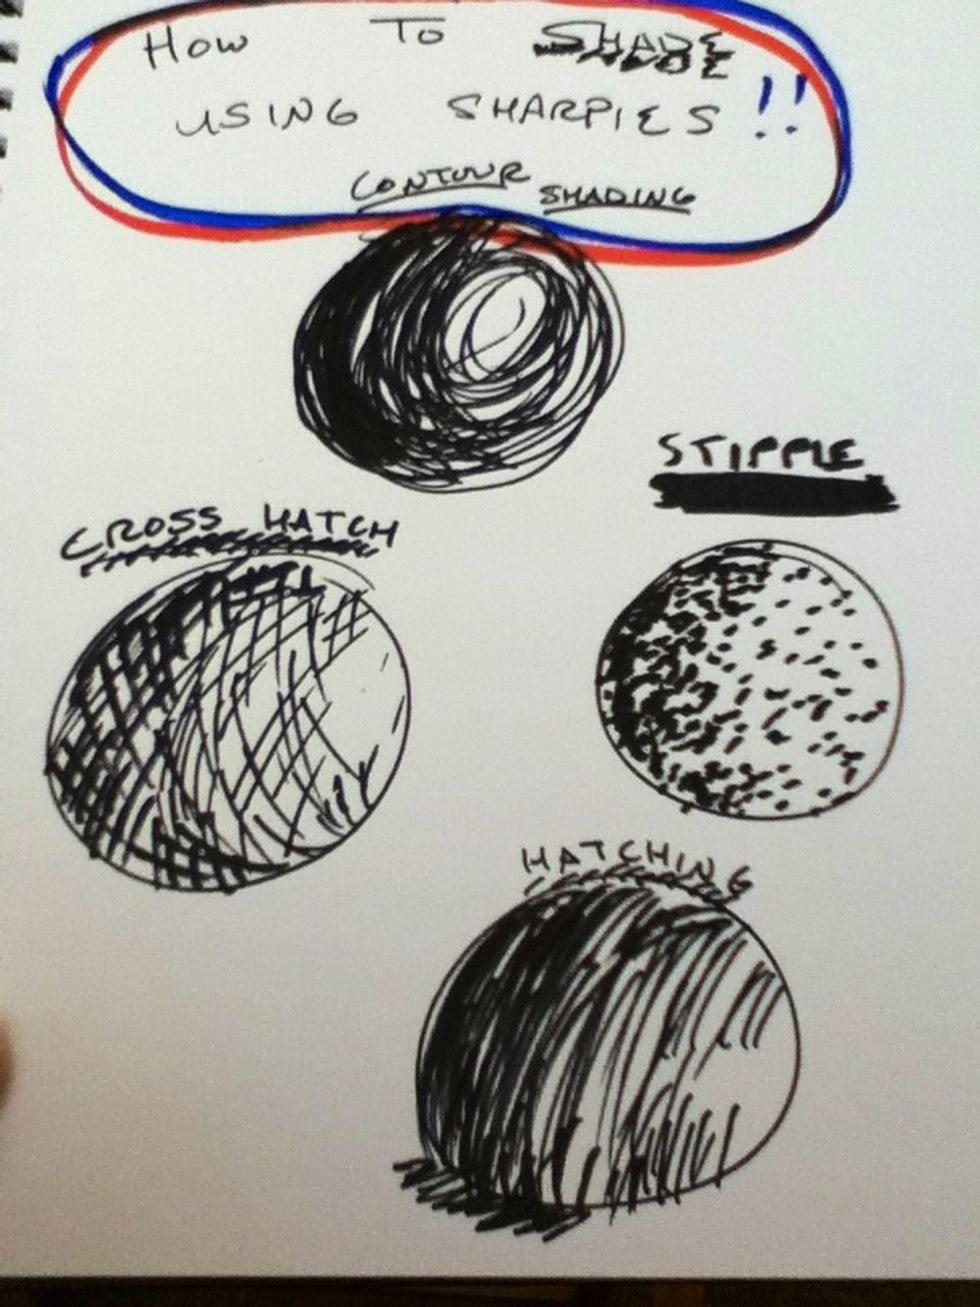 How To SHADE
USING SHARPIES !!
CONTOUR SHADING
STIPPLE
CROSS HATCH
HATCHING